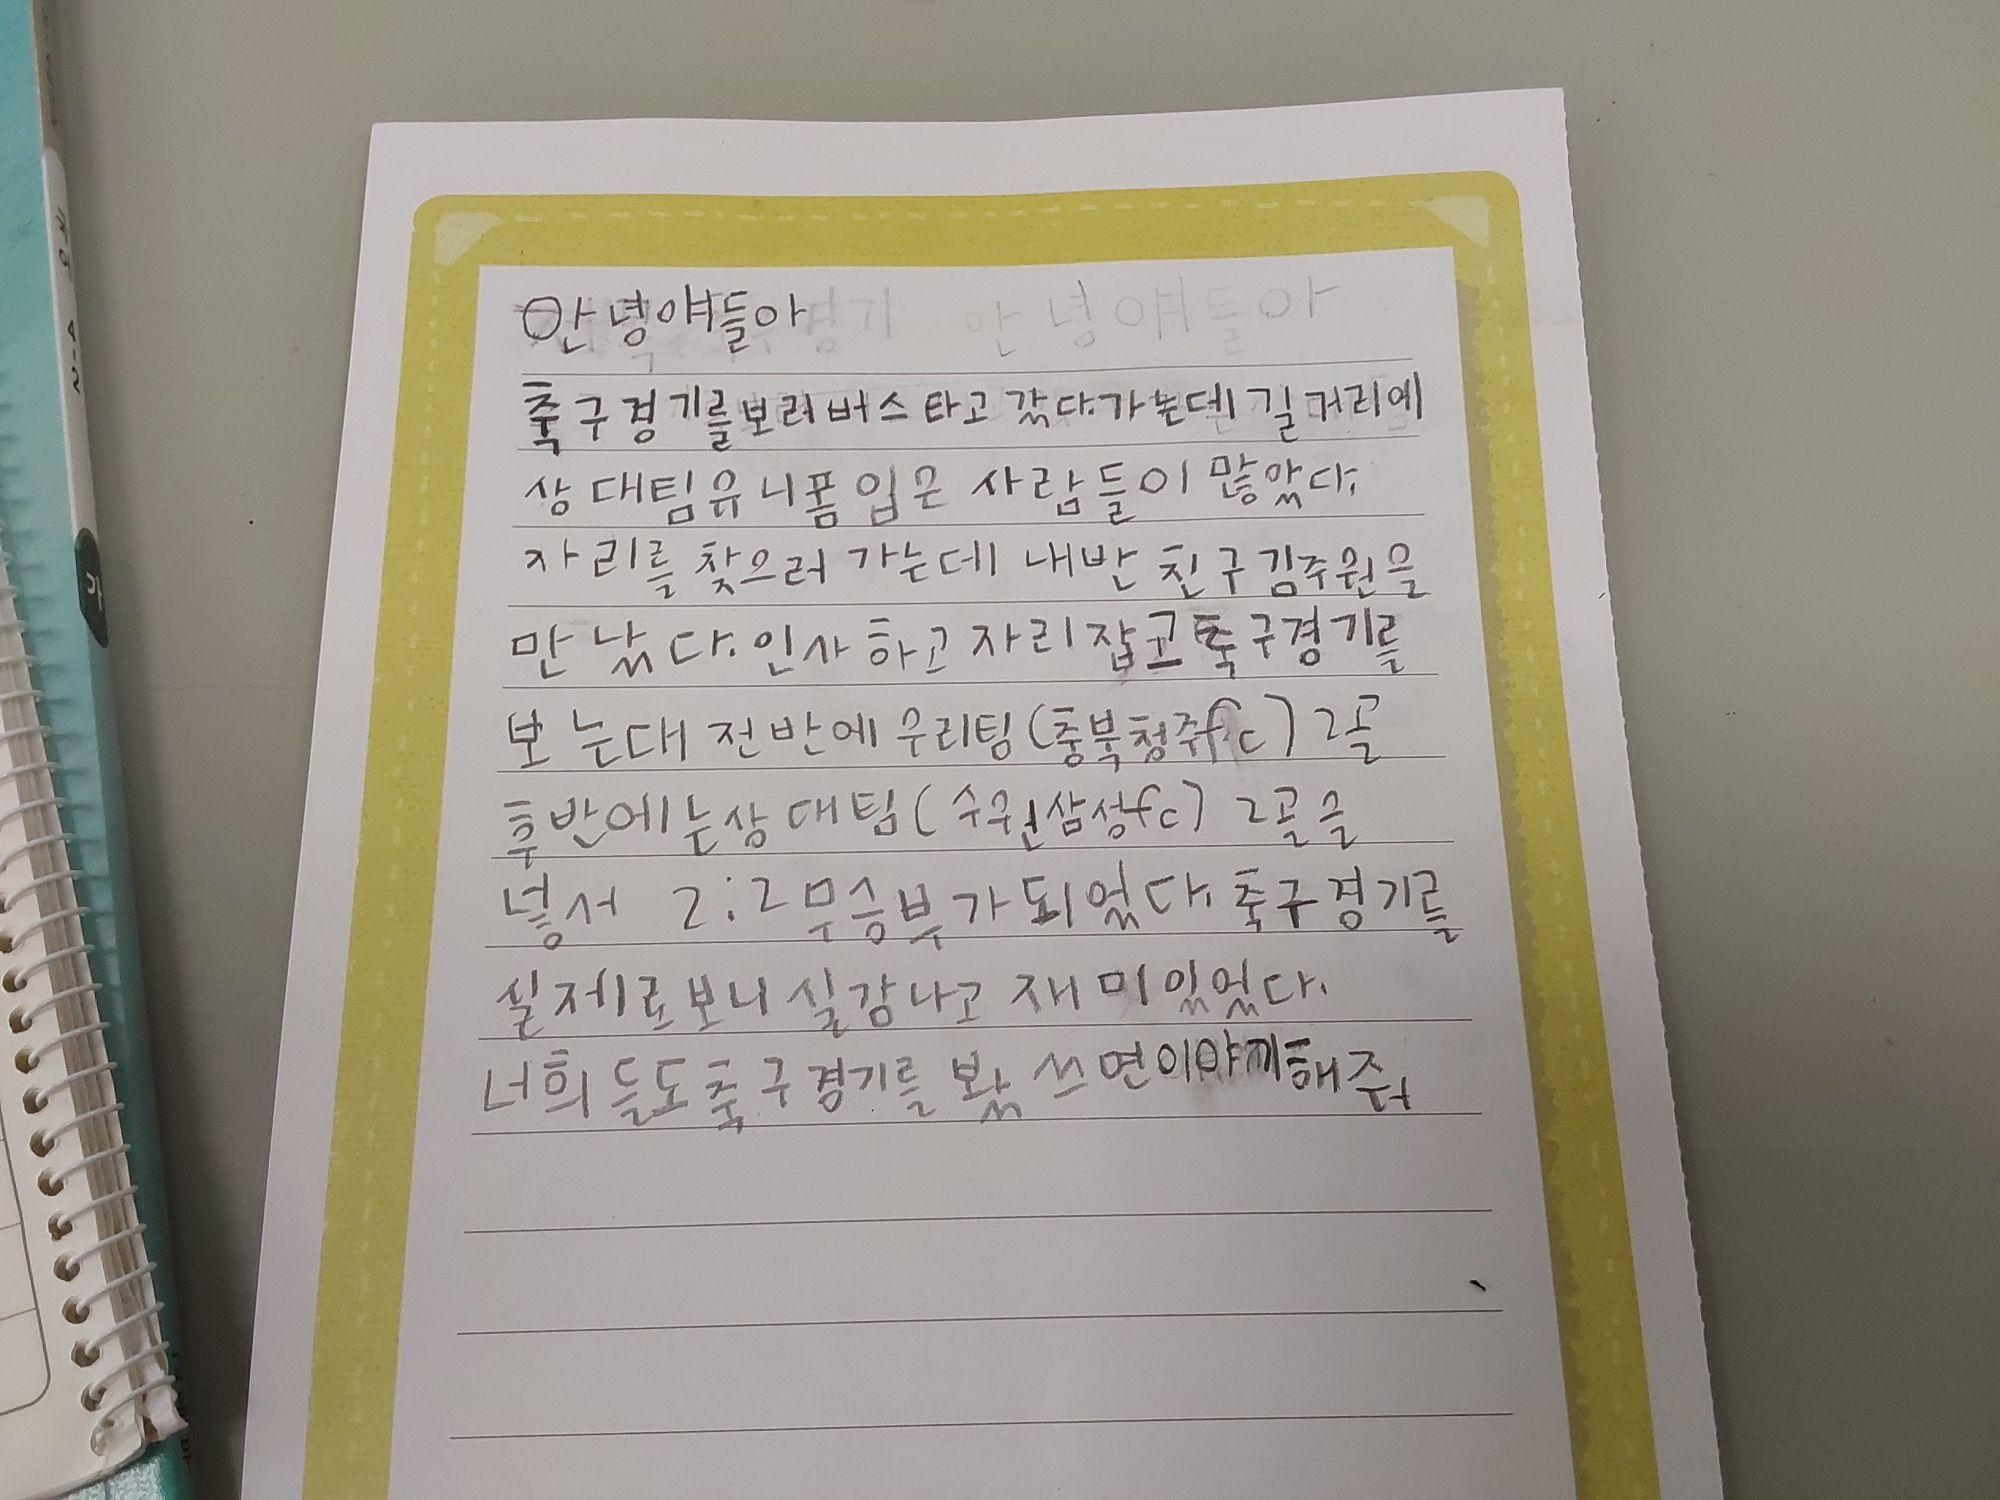 안녕얘들아
축구경기를보러버스타고 갔다.가는데 길거리에
상대팀유니폼 입은 사람들이 많았다.
자리를 찾으러 가는데 내반 친구김주원을
만났다.인사하고자리잡고축구경기를
보는대 전반에 우리팀(충북청주fc) 2골
후반에는상대팀(수원삼성fc) 2골을
넣서 2:2무승부가되었다.축구경기를
실제로보니실감나고 재미있었다.
너희들도축구경기를 봤쓰면이야끼해줘
4-2
가